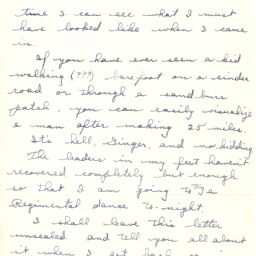 time I can see what I must
have looked like when I came
in.
If you have ever seen a kid
walking (???) barefoot on a cinder
road or through a sand burr
patch, you can easily visualize
a man after making 25 miles.
It's hell, Ginger, and no kidding.
The leaders in my feet haven't
recovered completely but enough
so that I am going to a
Regimental dance to-night.
I shall leave this letter
unsealed and tell you all about
it when I get back